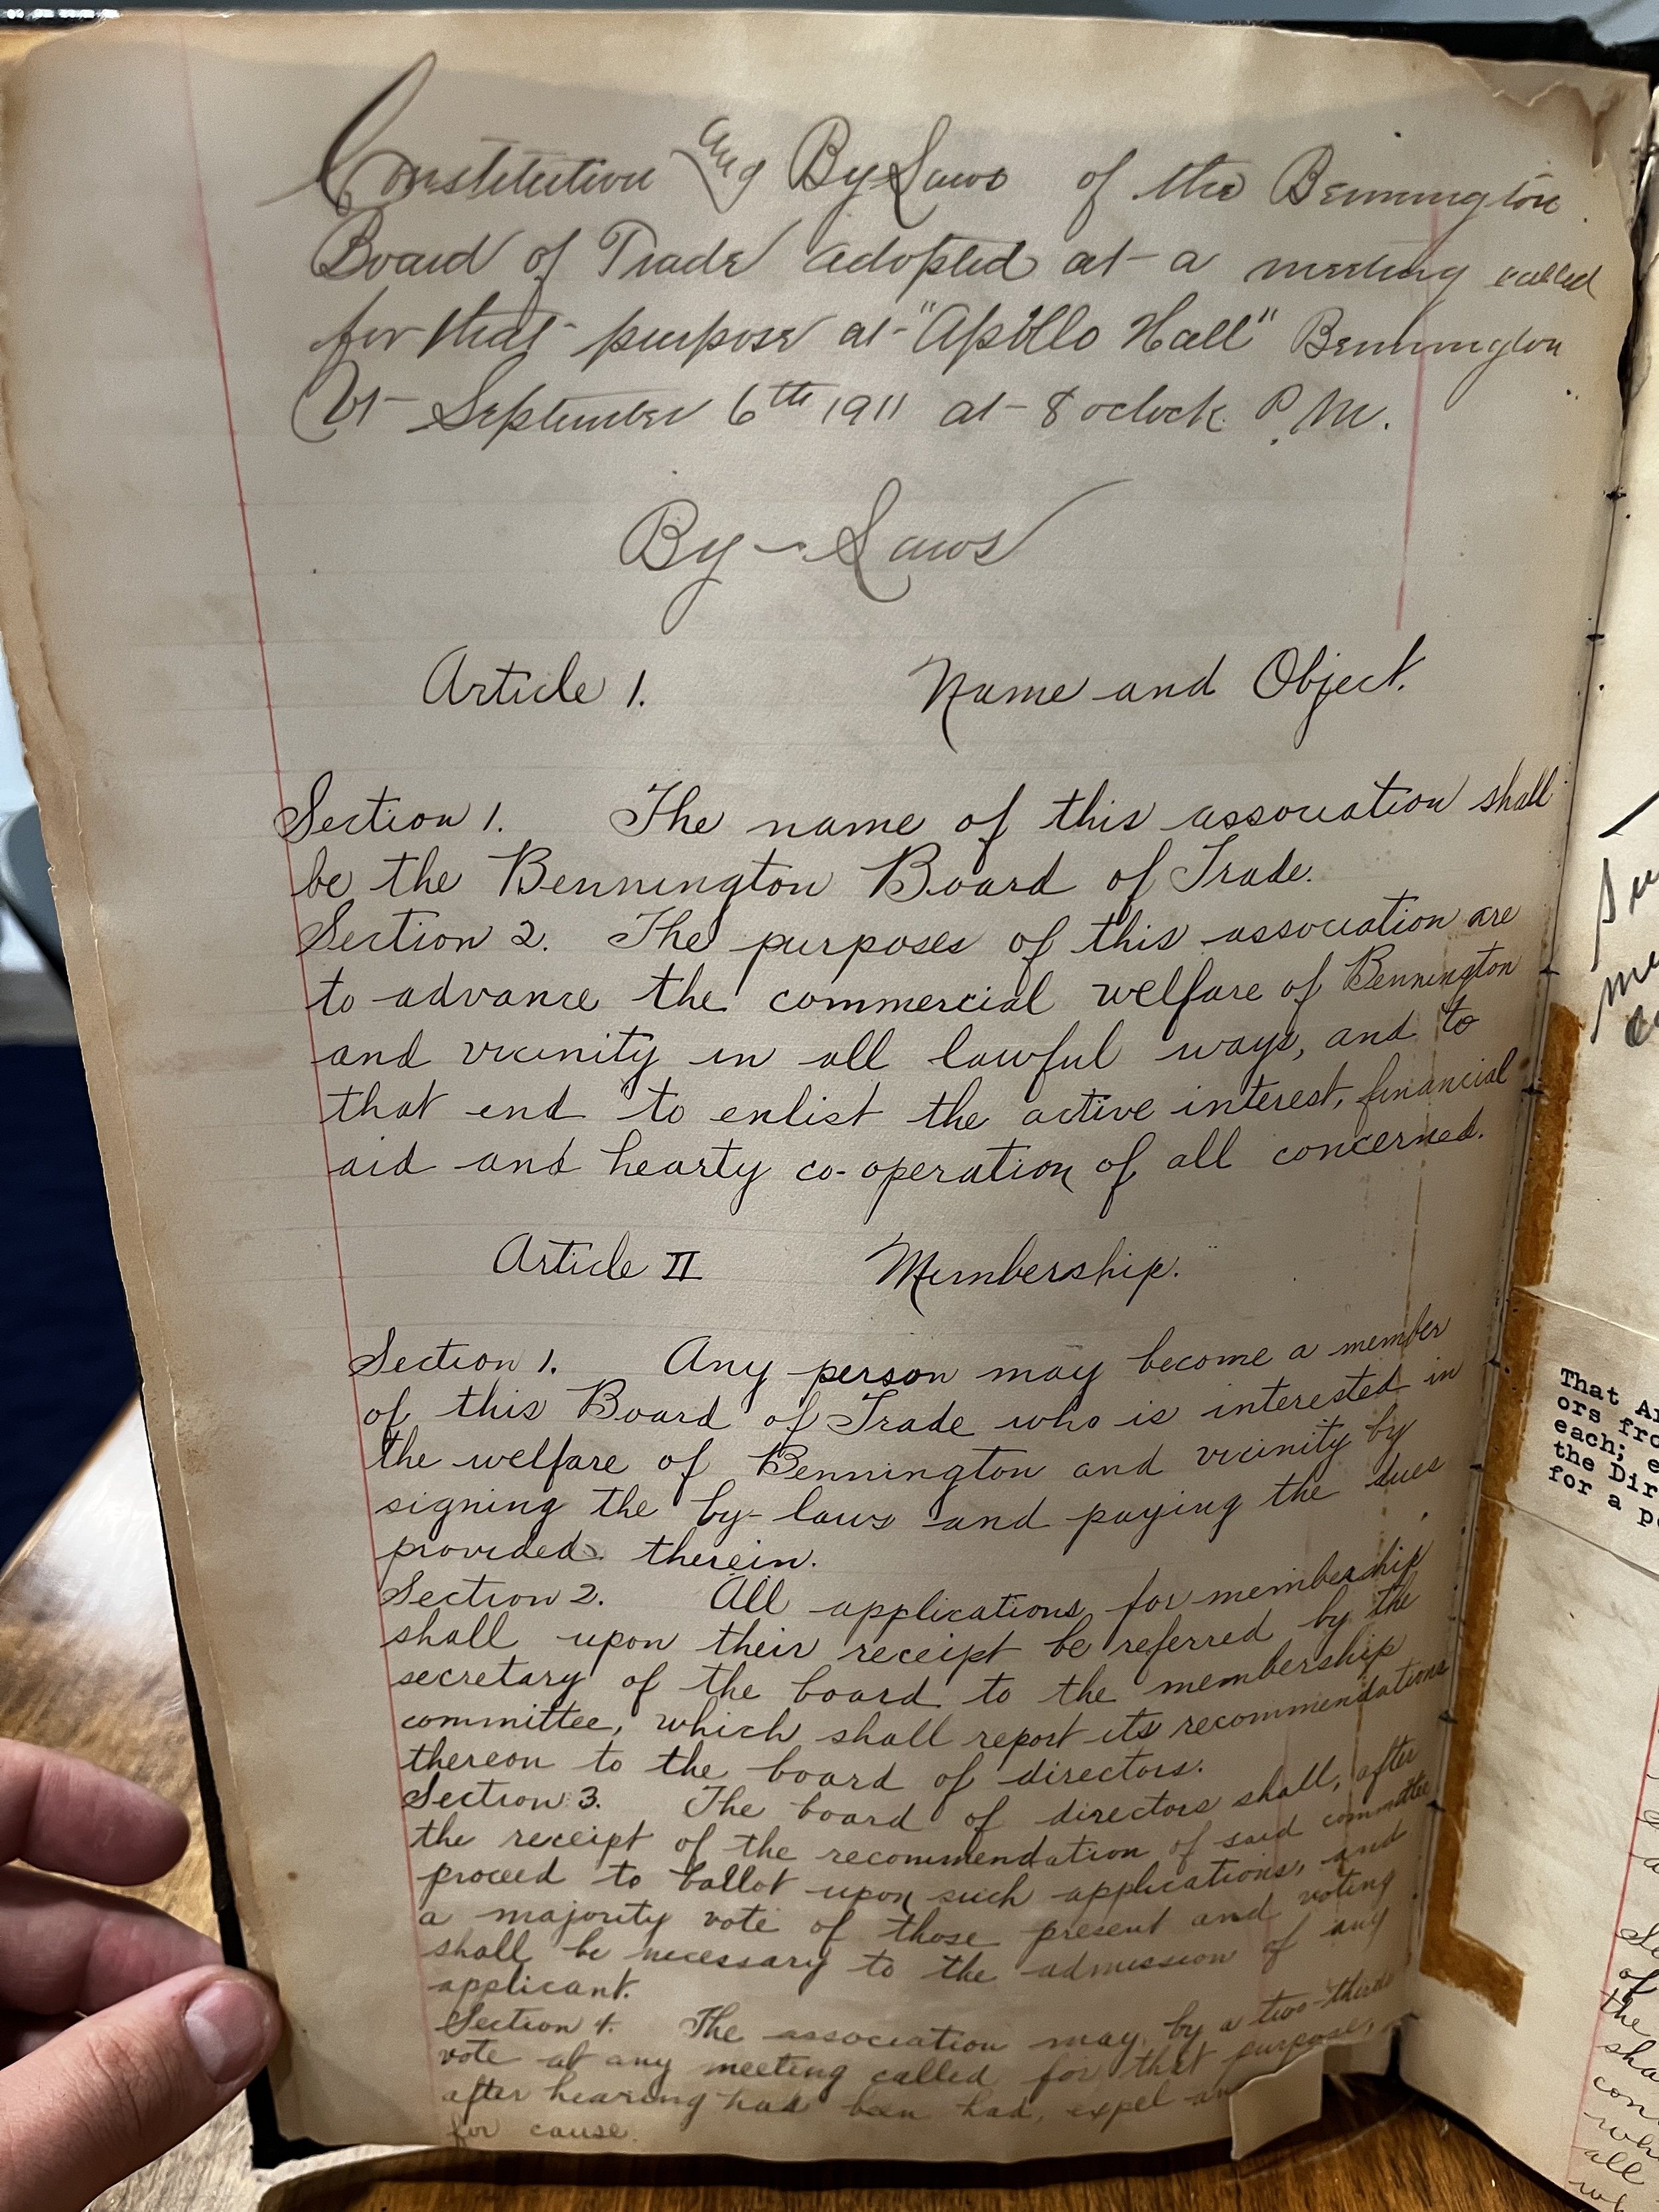 Constitution and By Laws of the Bennington
Board of Trade adopted at a meeting called
for that purpose at "Apollo Hall" Bennington
Vt September 6th 1911 at 8 oclock P.M.
By-Laws
Article 1. Name and Object.
Section 1. The name of this association shall
be the Bennington Board of Trade.
Section 2. The purposes of this association are
to advance the commercial welfare of Bennington
and vicinity in all lawful ways, and to
that end to enlist the active interest, financial
aid and hearty co-operation of all concerned.
Article II Membership.
Section 1. Any person may become a member
of this Board of Trade who is interested in
the welfare of Bennington and vicinity by
signing the by-laws and paying the dues
provided therein.
Section 2. All applications for membership
shall upon their receipt be referred by the
secretary of the board to the membership
committee, which shall report its recommendations
thereon to the board of directors.
Section 3. The board of directors shall, after
the receipt of the recommendation of said committee
proceed to ballot upon such applications, and
a majority vote of those present and voting
shall be necessary to the admission of any
applicant.
Section 4. The association may, by a two-thirds
vote at any meeting called for that purpose,
after hearing has been had, expel
for cause.
That
ors
each;
the
for a
of
the
all